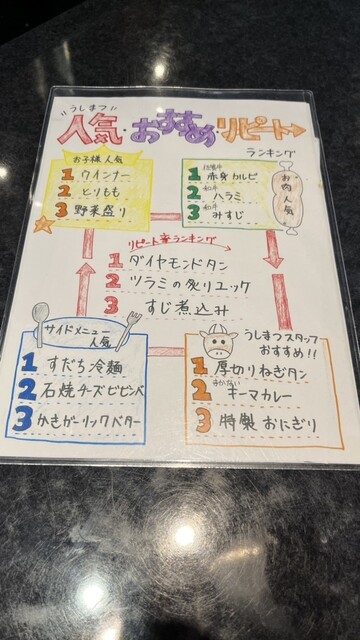 うしまつ
人気・おすすめ・リピート
ランキング
お子様人気
1 ウインナー
2 とりもも
3 野菜盛り
1 赤身カルビ
和牛
2 ハラミ
和牛
3 みすじ
お肉人気
リピート率ランキング
1 ダイヤモンドタン
2 ツラミの炙りユッケ
3 すじ煮込み
サイドメニュー
人気
1 すだち冷麺
2 石焼チーズビビンバ
3 かきガーリックバター
うしまつスタッフ
おすすめ!!
1 厚切りねぎタン
2 キーマカレー
3 特製おにぎり